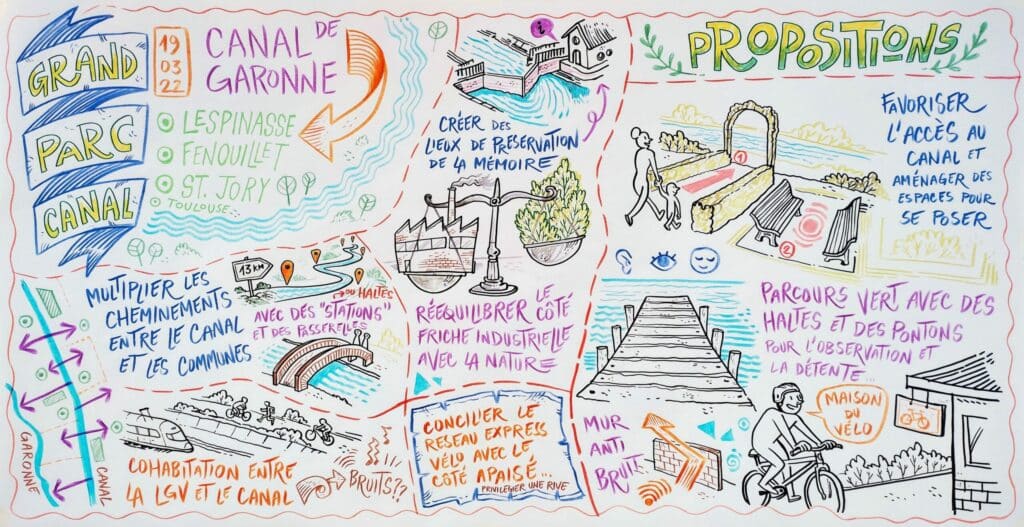 GRAND
PARC
CANAL
19
03
22
CANAL DE
GARONNE
LESPINASSE
FENOUILLET
ST. JORY
TOULOUSE..
MULTIPLIER LES
CHEMINEMENTS
ENTRE LE CANAL
ET LES COMMUNES
13 KM
OU HALTES
AVEC DES "STATIONS"
ET DES PASSERELLES
GARONNE
CANAL
COHABITATION ENTRE
LA LGV ET LE CANAL
BRUITS??
i
CRÉER DES
LIEUX DE PRÉSERVATION
DE LA MÉMOIRE
RÉÉQUILIBRER LE
CÔTÉ
FRICHE INDUSTRIELLE
AVEC LA NATURE
CONCILIER LE
RESEAU EXPRESS
VÉLO AVEC LE
CÔTÉ APAISÉ...
PRIVILÉGIER UNE RIVE
PROPOSITIONS
FAVORISER
L'ACCÈS AU
CANAL ET
AMÉNAGER DES
ESPACES POUR
SE POSER
1
2
PARCOURS VERT AVEC DES
HALTES ET DES PONTONS
POUR L'OBSERVATION ET
LA DÉTENTE...
MUR
ANTI
BRUIT!
MAISON
DU
VÉLO